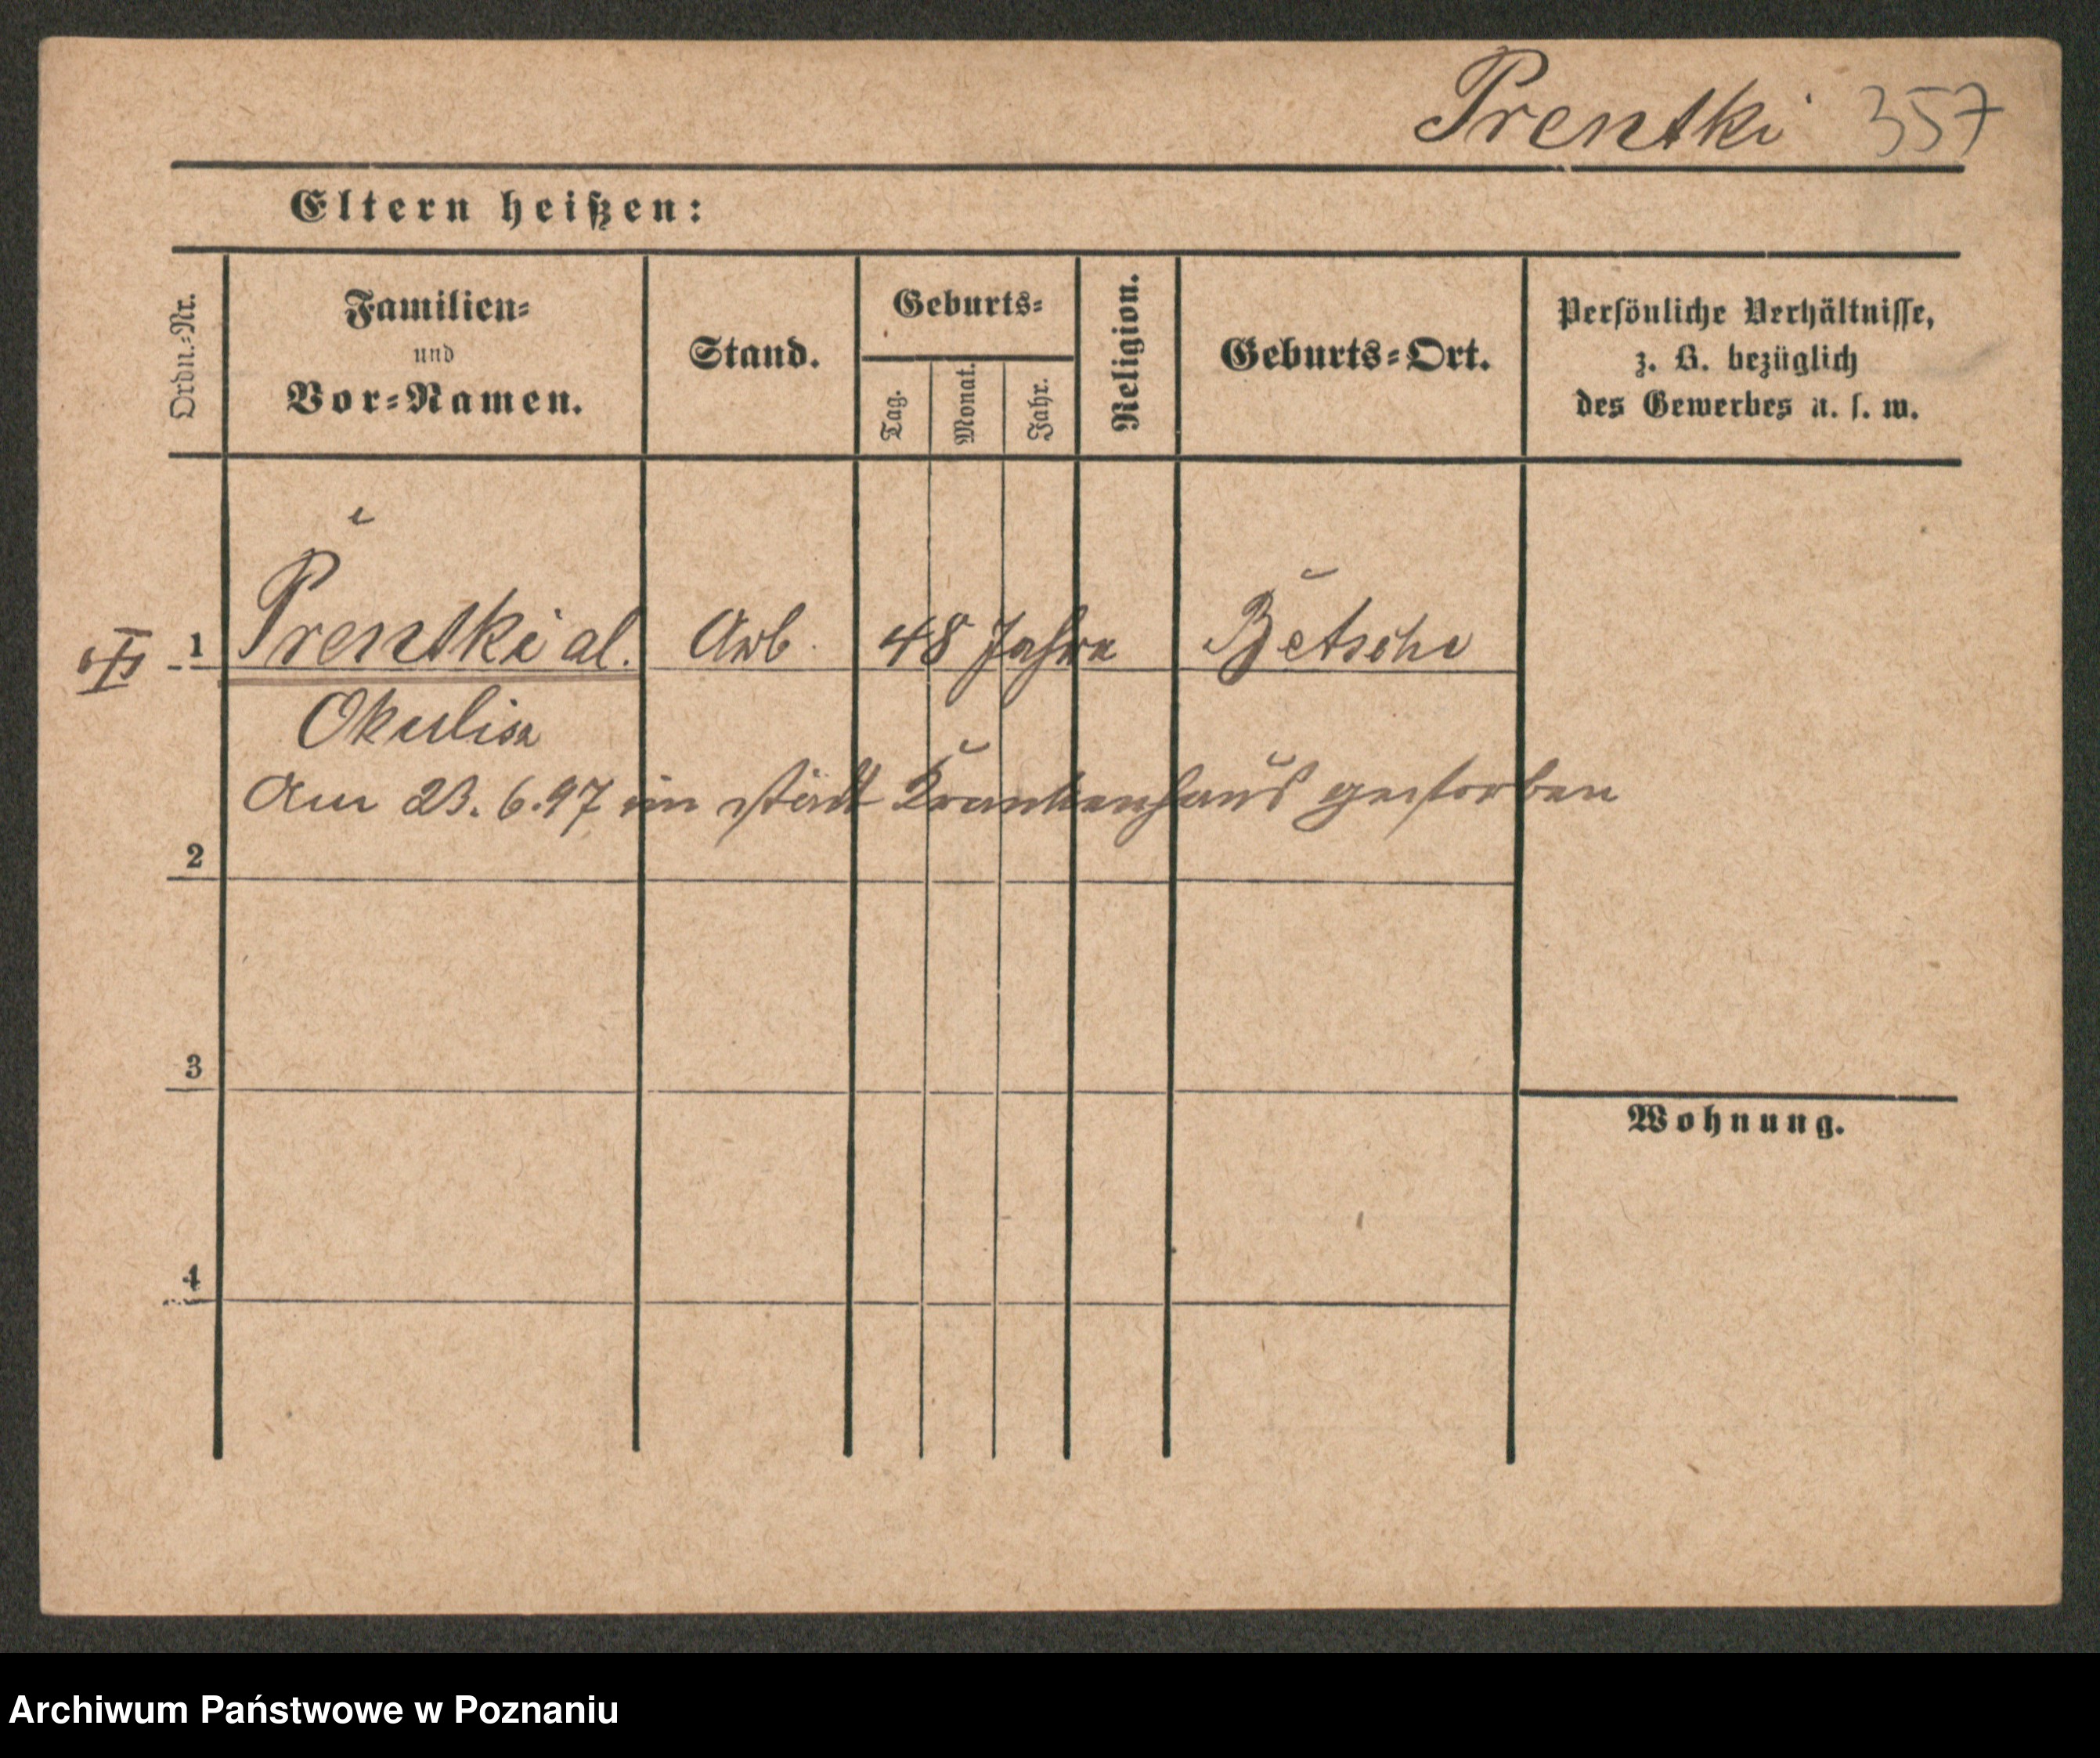 Prentki 357
Eltern heißen:
Ordn.-Nr.
Familien-
und
Vor-Namen.
Stand.
Geburts-
Tag.
Monat.
Jahr.
Religion.
Geburts-Ort.
Persönliche Verhältnisse,
z. B. bezüglich
des Gewerbes u. s. w.
1 Prentki al. Arb. 48 Jahre Betsche
Am 23.6.97 im städt Krankenhaus gestorben
2
3
Wohnung.
4
Archiwum Państwowe w Poznaniu